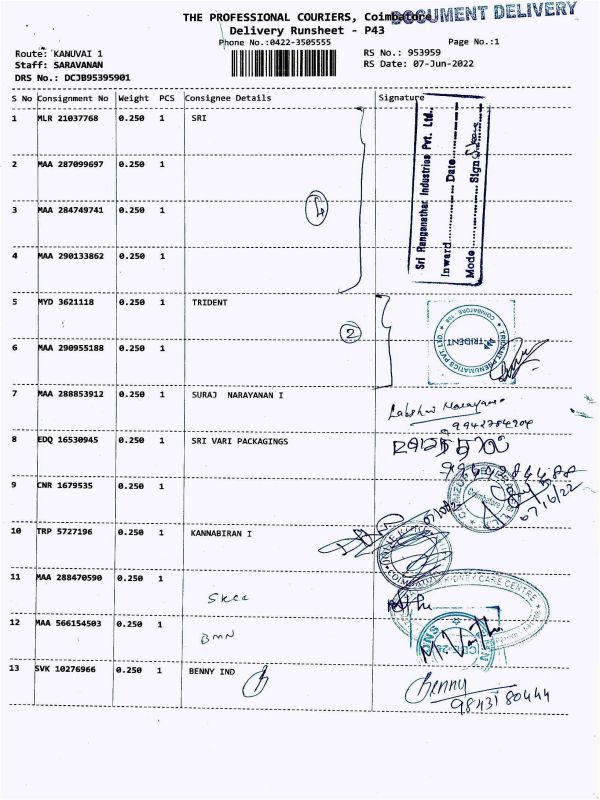 THE PROFESSIONAL COURIERS, Coimbatore
DOCUMENT DELIVERY
Delivery Runsheet - P43
Phone No.:0422-3505555
Page No.:1
Route: KANUVAI 1
RS No.: 953959
Staff: SARAVANAN
RS Date: 07-Jun-2022
DRS No.: DCJB95395901
S No Consignment No Weight PCS Consignee Details Signature
1 MLR 21037768 0.250 1 SRI
2 MAA 287099697 0.250 1
3 MAA 284749741 0.250 1
4 MAA 290133862 0.250 1
Sri Ranganathar Industries Pvt. Ltd.,
Inward.........Date.........
Mode.........Sign
5 MYD 3621118 0.250 1 TRIDENT
2
TRIDENT
TRIDENT PNEUMATICS PVT. LTD
6 MAA 290955188 0.250 1
7 MAA 288853912 0.250 1 SURAJ NARAYANAN I
Lakshmi Narayanan
8 EDQ 16530945 0.250 1 SRI VARI PACKAGINGS
9 CNR 1679535 0.250 1
Coimbatore
10 TRP 5727196 0.250 1 KANNABIRAN I
11 MAA 288470590 0.250 1
KIDNEY CARE CENTRE
12 MAA 566154503 0.250 1
BMN
13 SVK 10276966 0.250 1 BENNY IND
Benny
9843180444